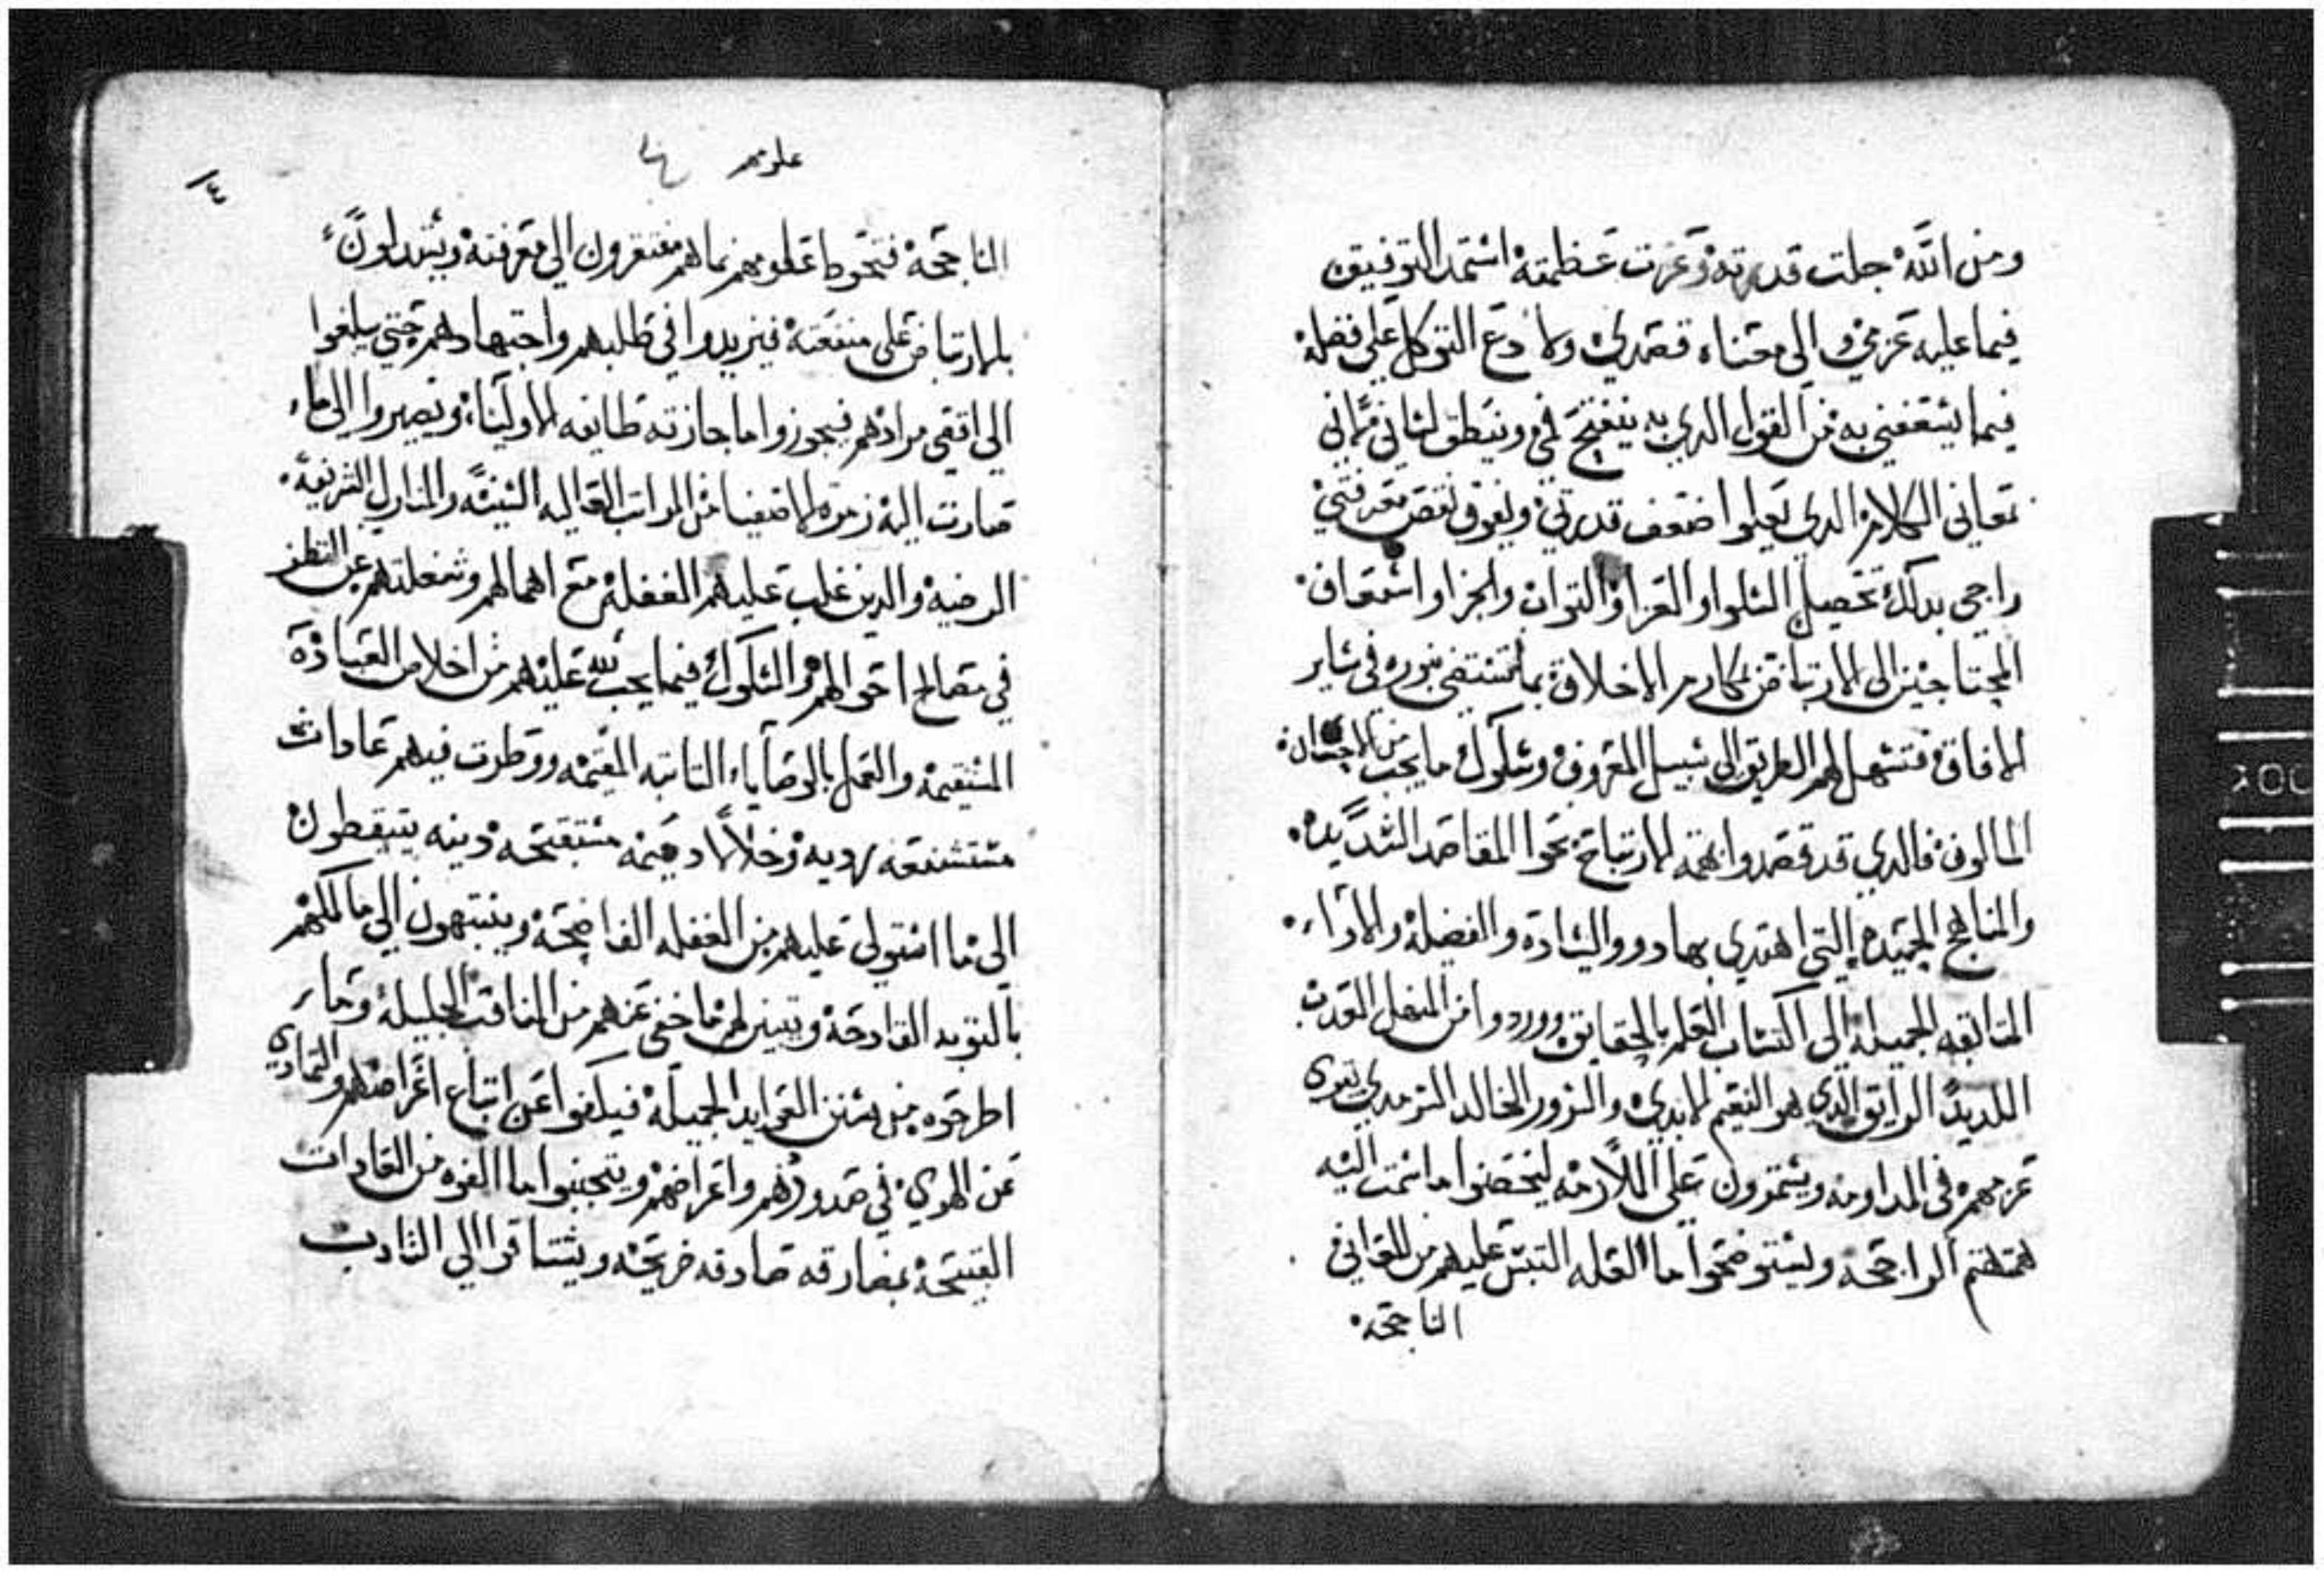 ومن الله جلت قدرته وعزت عظمته استمد التوفيق
فيما عليه عزمي والى معناه قصدي وكا دع التوكل على فضله
فيما يشعفني به من القول الدي به ينفتح في وينطق لساني
معاني الكلام الدي تعلوا ضعف قدرتي وتفوق نقص معرفتي
راجي بدلك تحصيل السلوا و العزا والتواب والجزا واسعاف
المحتاجين الى الارتياض لمكارم الاخلاق بما تستضي بنوره في ساير
الافاق فتسهل لهم الطريق الى سبيل المعروف وسلوك ما يجب من
المالوف فالدي قد قصدوا الارتياح نحوا المقاصد السديده
والمناهج الحميده التي اهتدي بها دوو السادة والفضله والاراء
السابقه الجميله الى اكتساب العلم بالحقايق ووردوا من المنهل العدب
اللديد الرايق الدي هو النعيم الابدي والسرور الخالد السرمدي تقوى
عزمهم في المداومه ويستمرون على الملازمه ليتحصنوا ما سمت اليه
هممهم الراجحه ويستوضحوا ما العله التبس عليهم من المعاني
الناجحه
علوتهم
٤
الناجحه فتحوط علومهم بما هم مفتقرون الى معرفته ويستدلون
بالارتياض على منفعته فيزيدوا في طلبهم واجتهادهم حتى يبلغوا
الى اقصى مرادهم فيجوزوا ما جازته طايفه الاوليا ويصيروا الى ما
صارت اليه زمرة الاصفيا من المراتب العاليه السنية والمنازل الشريفه
المرضيه والدين غلب عليهم الغفله مع اهمالهم وشغلتهم عن النظر
في مصالح احوالهم والسلوك فيما يجب لله عليهم من اخلاص العبادة
المستقيمه والعمل بالوصايا التابته المقيمه ووطرت فيهم عادات
مستشنعه رديه وخلالا دميمه مستقبحه دنيه يتيقظون
الى ما استولى عليهم من الغفله الفاضحه وينتبهون الى ما
بالتوبه القادحه وتبين لهم ما خفي عنهم من المناقب الجليله وما
اطرحوه من سنن العوايد الجميله فيكفوا عن اتباع اغراضهم والتمادي
عن الهوى في صدورهم واعراضهم ويتجنبوا ما الفوه من العادات
القبيحه بمفارقه صادقه صريحه ويشتاقوا الى التادب